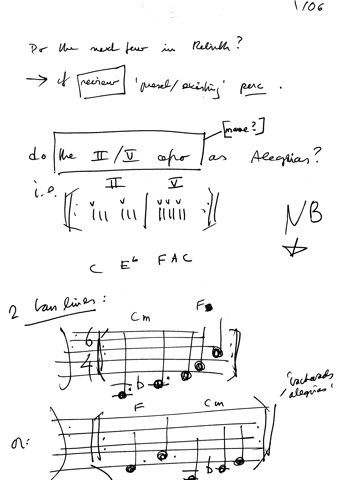 1/06
Do the next few in Rebirth?
→ if review 'preset/existing' perc.
[name?]
do the II/V capo as Alegrias?
i.e. II V
NB
C Eb F A C
2 bar lines:
Cm F
6
4
'backwards
alegrias'
or: F Cm